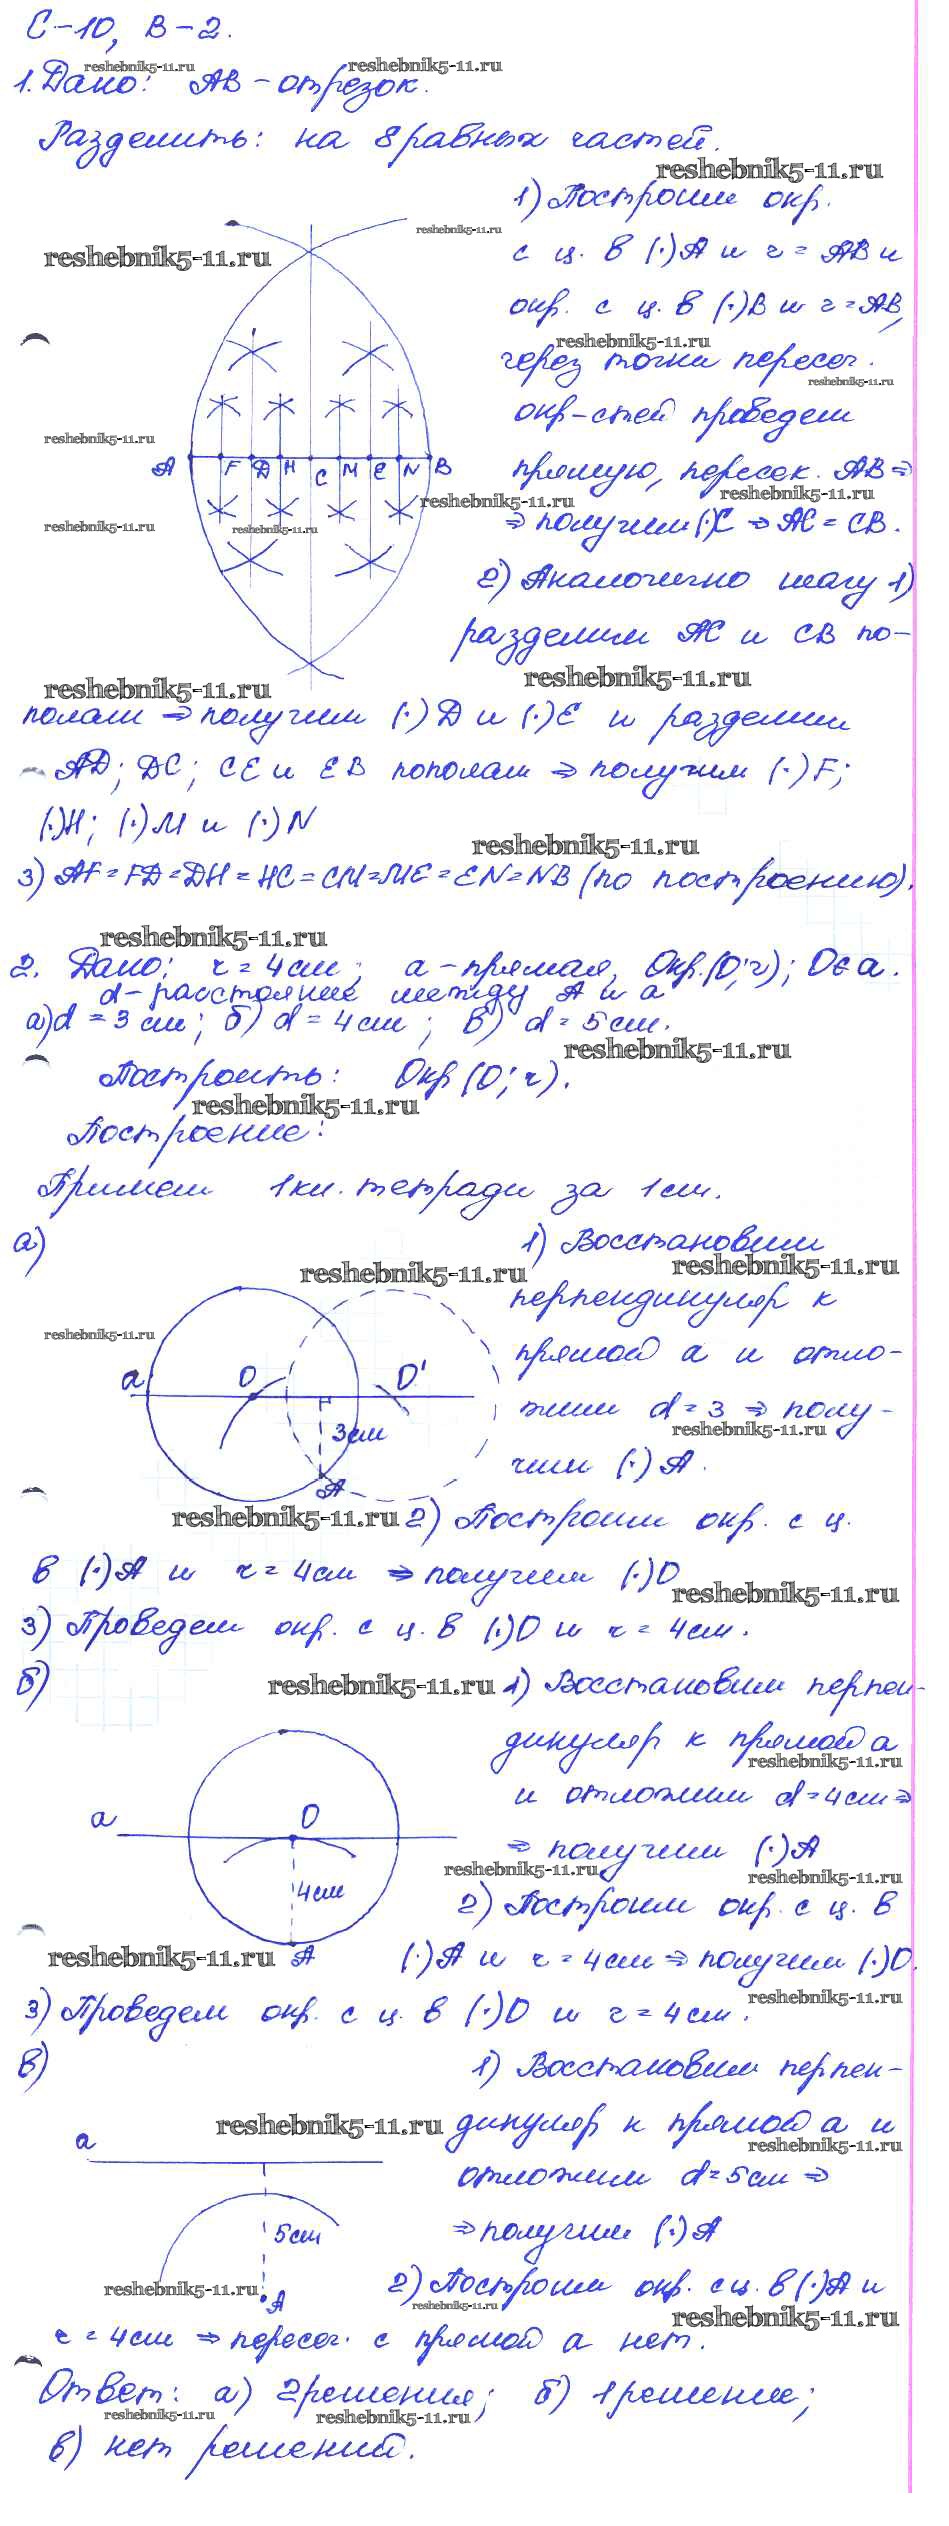 С-10, В-2.
reshebnik5-11.ru
reshebnik5-11.ru
1. Дано: AB - отрезок.
Разделить: на 8 равных частей.
reshebnik5-11.ru
1) Построим окр.
reshebnik5-11.ru
reshebnik5-11.ru
с ц. в (·)A и r = AB и
окр. с ц. в (·)B и r = AB,
reshebnik5-11.ru
через точки пересеч.
reshebnik5-11.ru
окр-стей проведем
reshebnik5-11.ru
A F D H C M E N B
прямую, пересек. AB ⇒
reshebnik5-11.ru
reshebnik5-11.ru
reshebnik5-11.ru
reshebnik5-11.ru
⇒ получим (·)C ⇒ AC = CB.
2) Аналогично шагу 1)
разделим AC и CB по-
reshebnik5-11.ru
reshebnik5-11.ru
полам ⇒ получим (·) D и (·) E и разделим
AD; DC; CE и EB пополам ⇒ получим (·) F;
(·)H; (·) M и (·) N
reshebnik5-11.ru
3) AF = FD = DH = HC = CM = ME = EN = NB (по построению).
reshebnik5-11.ru
2. Дано: r = 4 см; a - прямая, Окр.(O;r); O∈a.
d - расстояние между A и a
а) d = 3 см; б) d = 4 см; в) d = 5 см.
reshebnik5-11.ru
Построить: Окр (O; r).
reshebnik5-11.ru
Построение:
Примем 1 кл. тетради за 1 см.
а)
1) Восстановим
reshebnik5-11.ru
reshebnik5-11.ru
перпендикуляр к
reshebnik5-11.ru
прямой a и отло-
a O O'
жим d = 3 ⇒ полу-
3 см
reshebnik5-11.ru
чим (·) A.
A
reshebnik5-11.ru
2) Построим окр. с ц.
в (·) A и r = 4 см ⇒ получим (·) O
reshebnik5-11.ru
3) Проведем окр. с ц. в (·) O и r = 4 см.
б)
reshebnik5-11.ru
1) Восстановим перпен-
дикуляр к прямой a
reshebnik5-11.ru
и отложим d = 4 см ⇒
a O
⇒ получим (·) A
reshebnik5-11.ru
reshebnik5-11.ru
4 см
2) Построим окр. с ц. в
reshebnik5-11.ru
A
(·) A и r = 4 см ⇒ получим (·) O.
reshebnik5-11.ru
3) Проведем окр. с ц. в (·) O и r = 4 см.
в)
1) Восстановим перпен-
reshebnik5-11.ru
дикуляр к прямой a и
reshebnik5-11.ru
a
отложим d = 5 см ⇒
5 см
⇒ получим (·) A
reshebnik5-11.ru
A
2) Построим окр. с ц. в (·) A и
reshebnik5-11.ru
reshebnik5-11.ru
r = 4 см ⇒ пересеч. с прямой a нет.
Ответ: а) 2 решения; б) 1 решение;
reshebnik5-11.ru
reshebnik5-11.ru
в) нет решений.